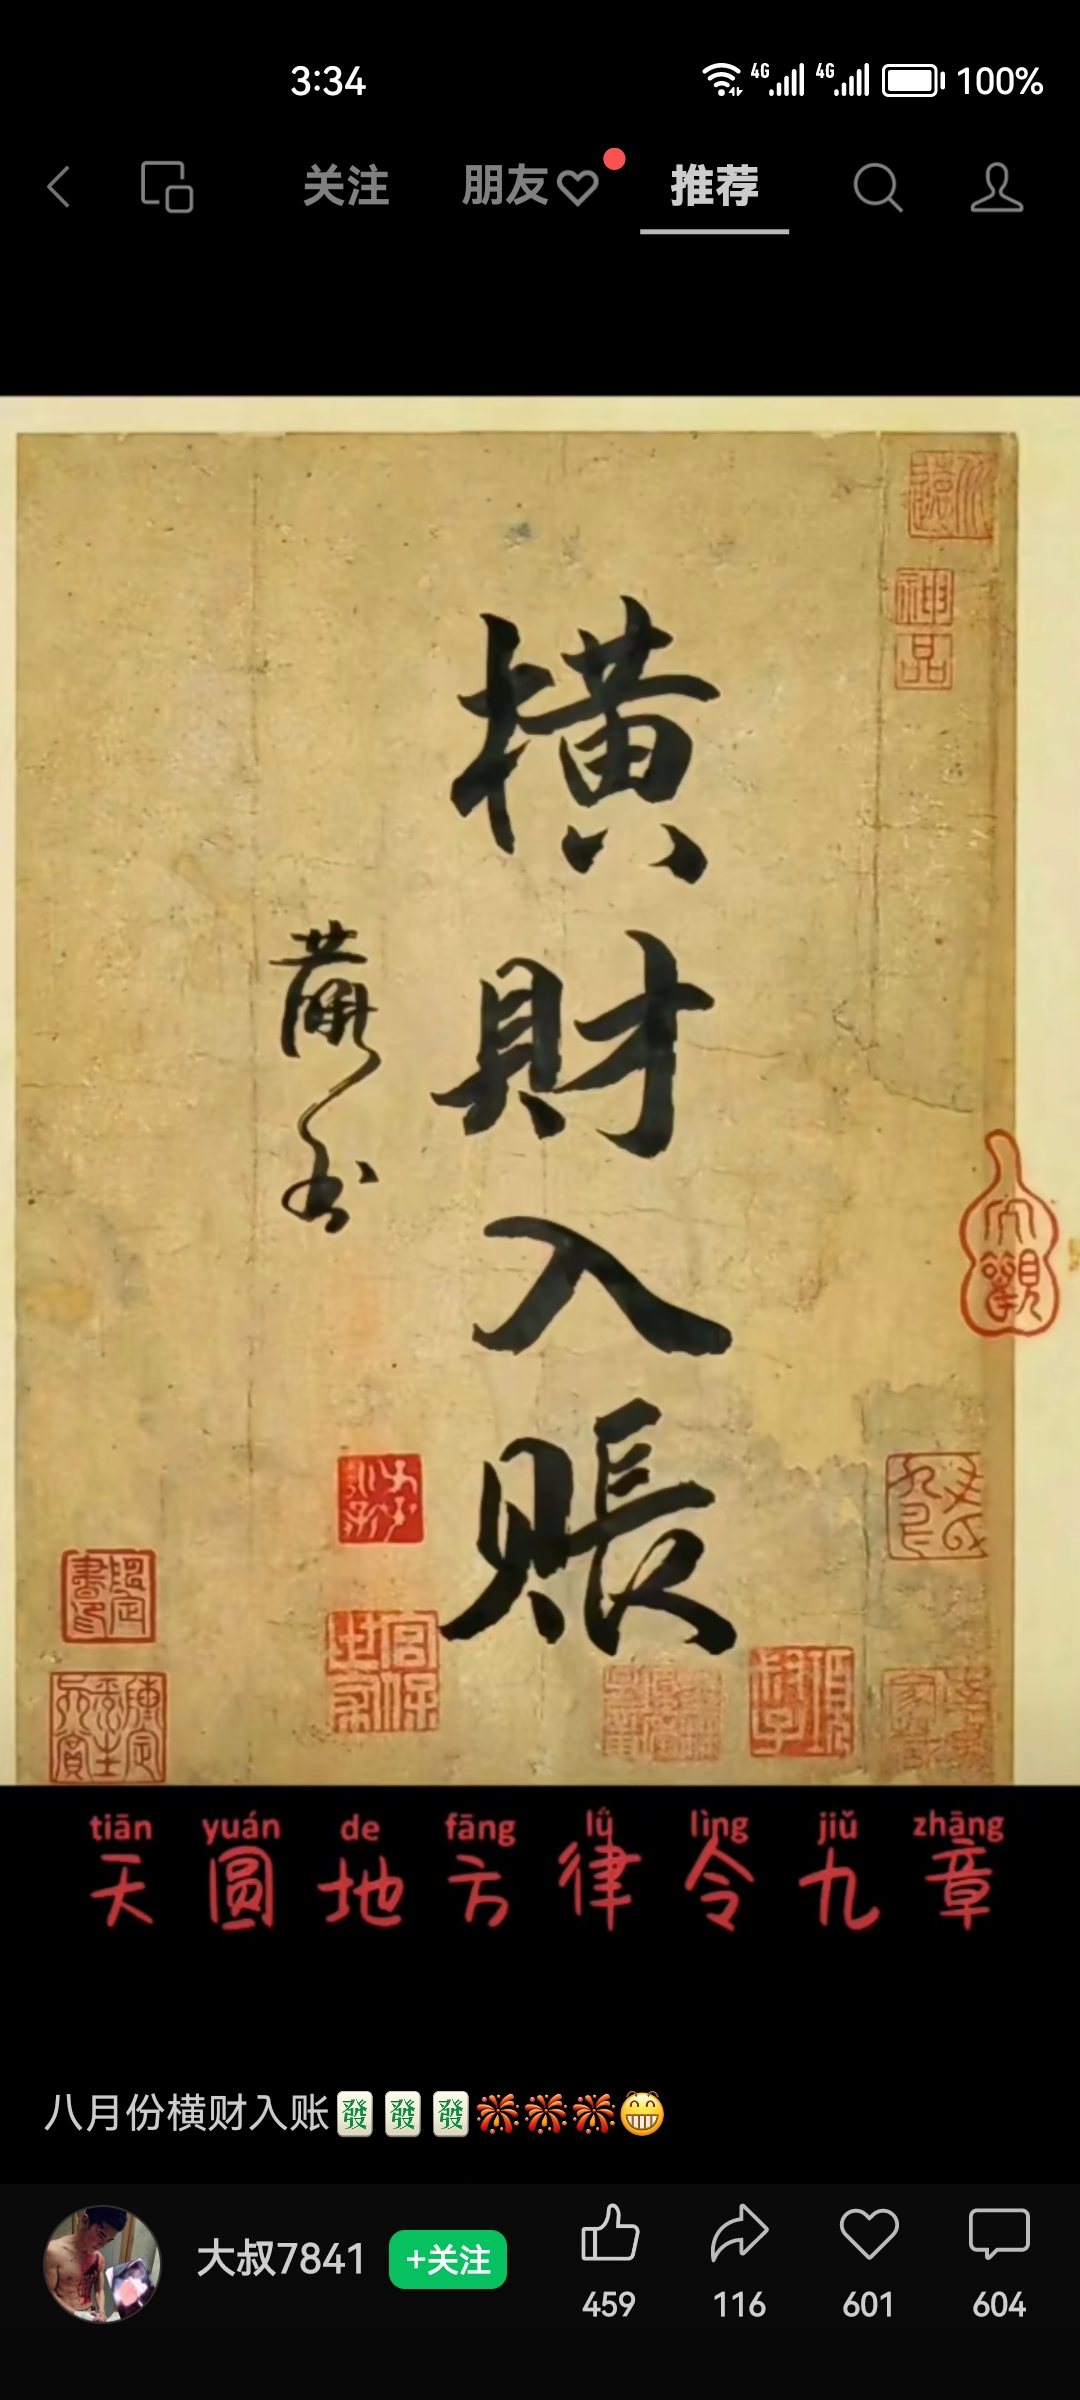 3:34
4G 4G 100%
关注 朋友 推荐
神品
橫財入賬
大觀
tiān yuán de fāng lǜ lìng jiǔ zhāng
天圓地方律令九章
八月份横财入账發發發
大叔7841 +关注
459 116 601 604